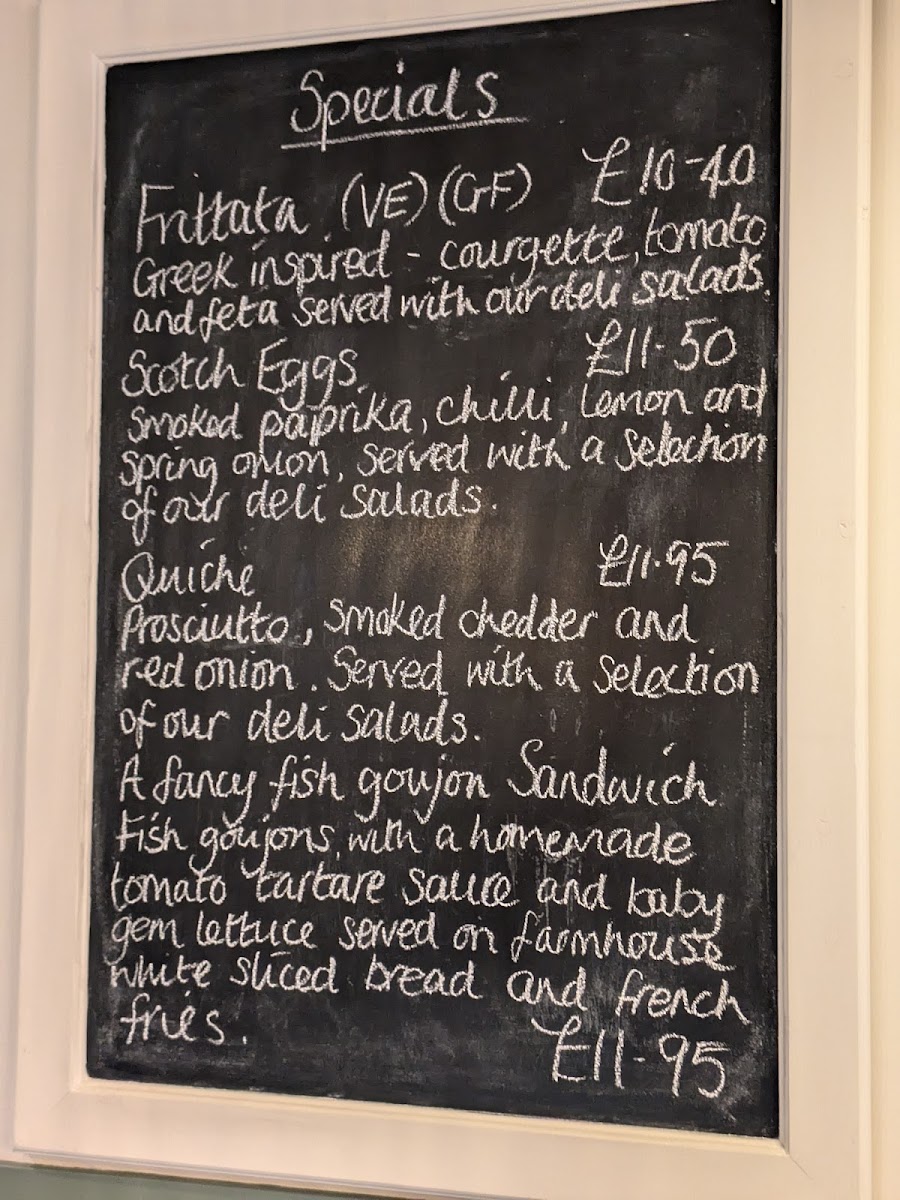 Specials
Frittata (VE) (GF) £10-40
Greek inspired - courgette, tomato
and feta served with our deli salads.
Scotch Eggs. £11.50
Smoked paprika, chilli, lemon and
spring onion, served with a selection
of our deli salads.
Quiche £11.95
Prosciutto, smoked chedder and
red onion. Served with a selection
of our deli salads.
A fancy fish goujon Sandwich
Fish goujons with a homemade
tomato tartare sauce and baby
gem lettuce served on farmhouse
white sliced bread and french
fries.
£11-95